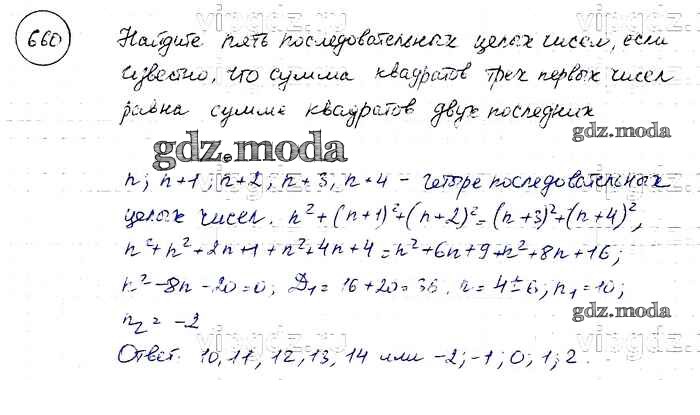 660 Найдите пять последовательных целых чисел, если
известно, что сумма квадратов трех первых чисел
равна сумме квадратов двух последних
gdz.moda
gdz.moda
n; n+1; n+2; n+3; n+4 - четыре последовательных
целых чисел. n²+(n+1)²+(n+2)²=(n+3)²+(n+4)²,
n²+n²+2n+1+n²+4n+4=n²+6n+9+n²+8n+16;
n²-8n-20=0; D₁=16+20=36. n=4±6; n₁=10;
gdz.moda
n₂=-2
Ответ. 10, 11, 12, 13, 14 или -2; -1; 0; 1; 2.